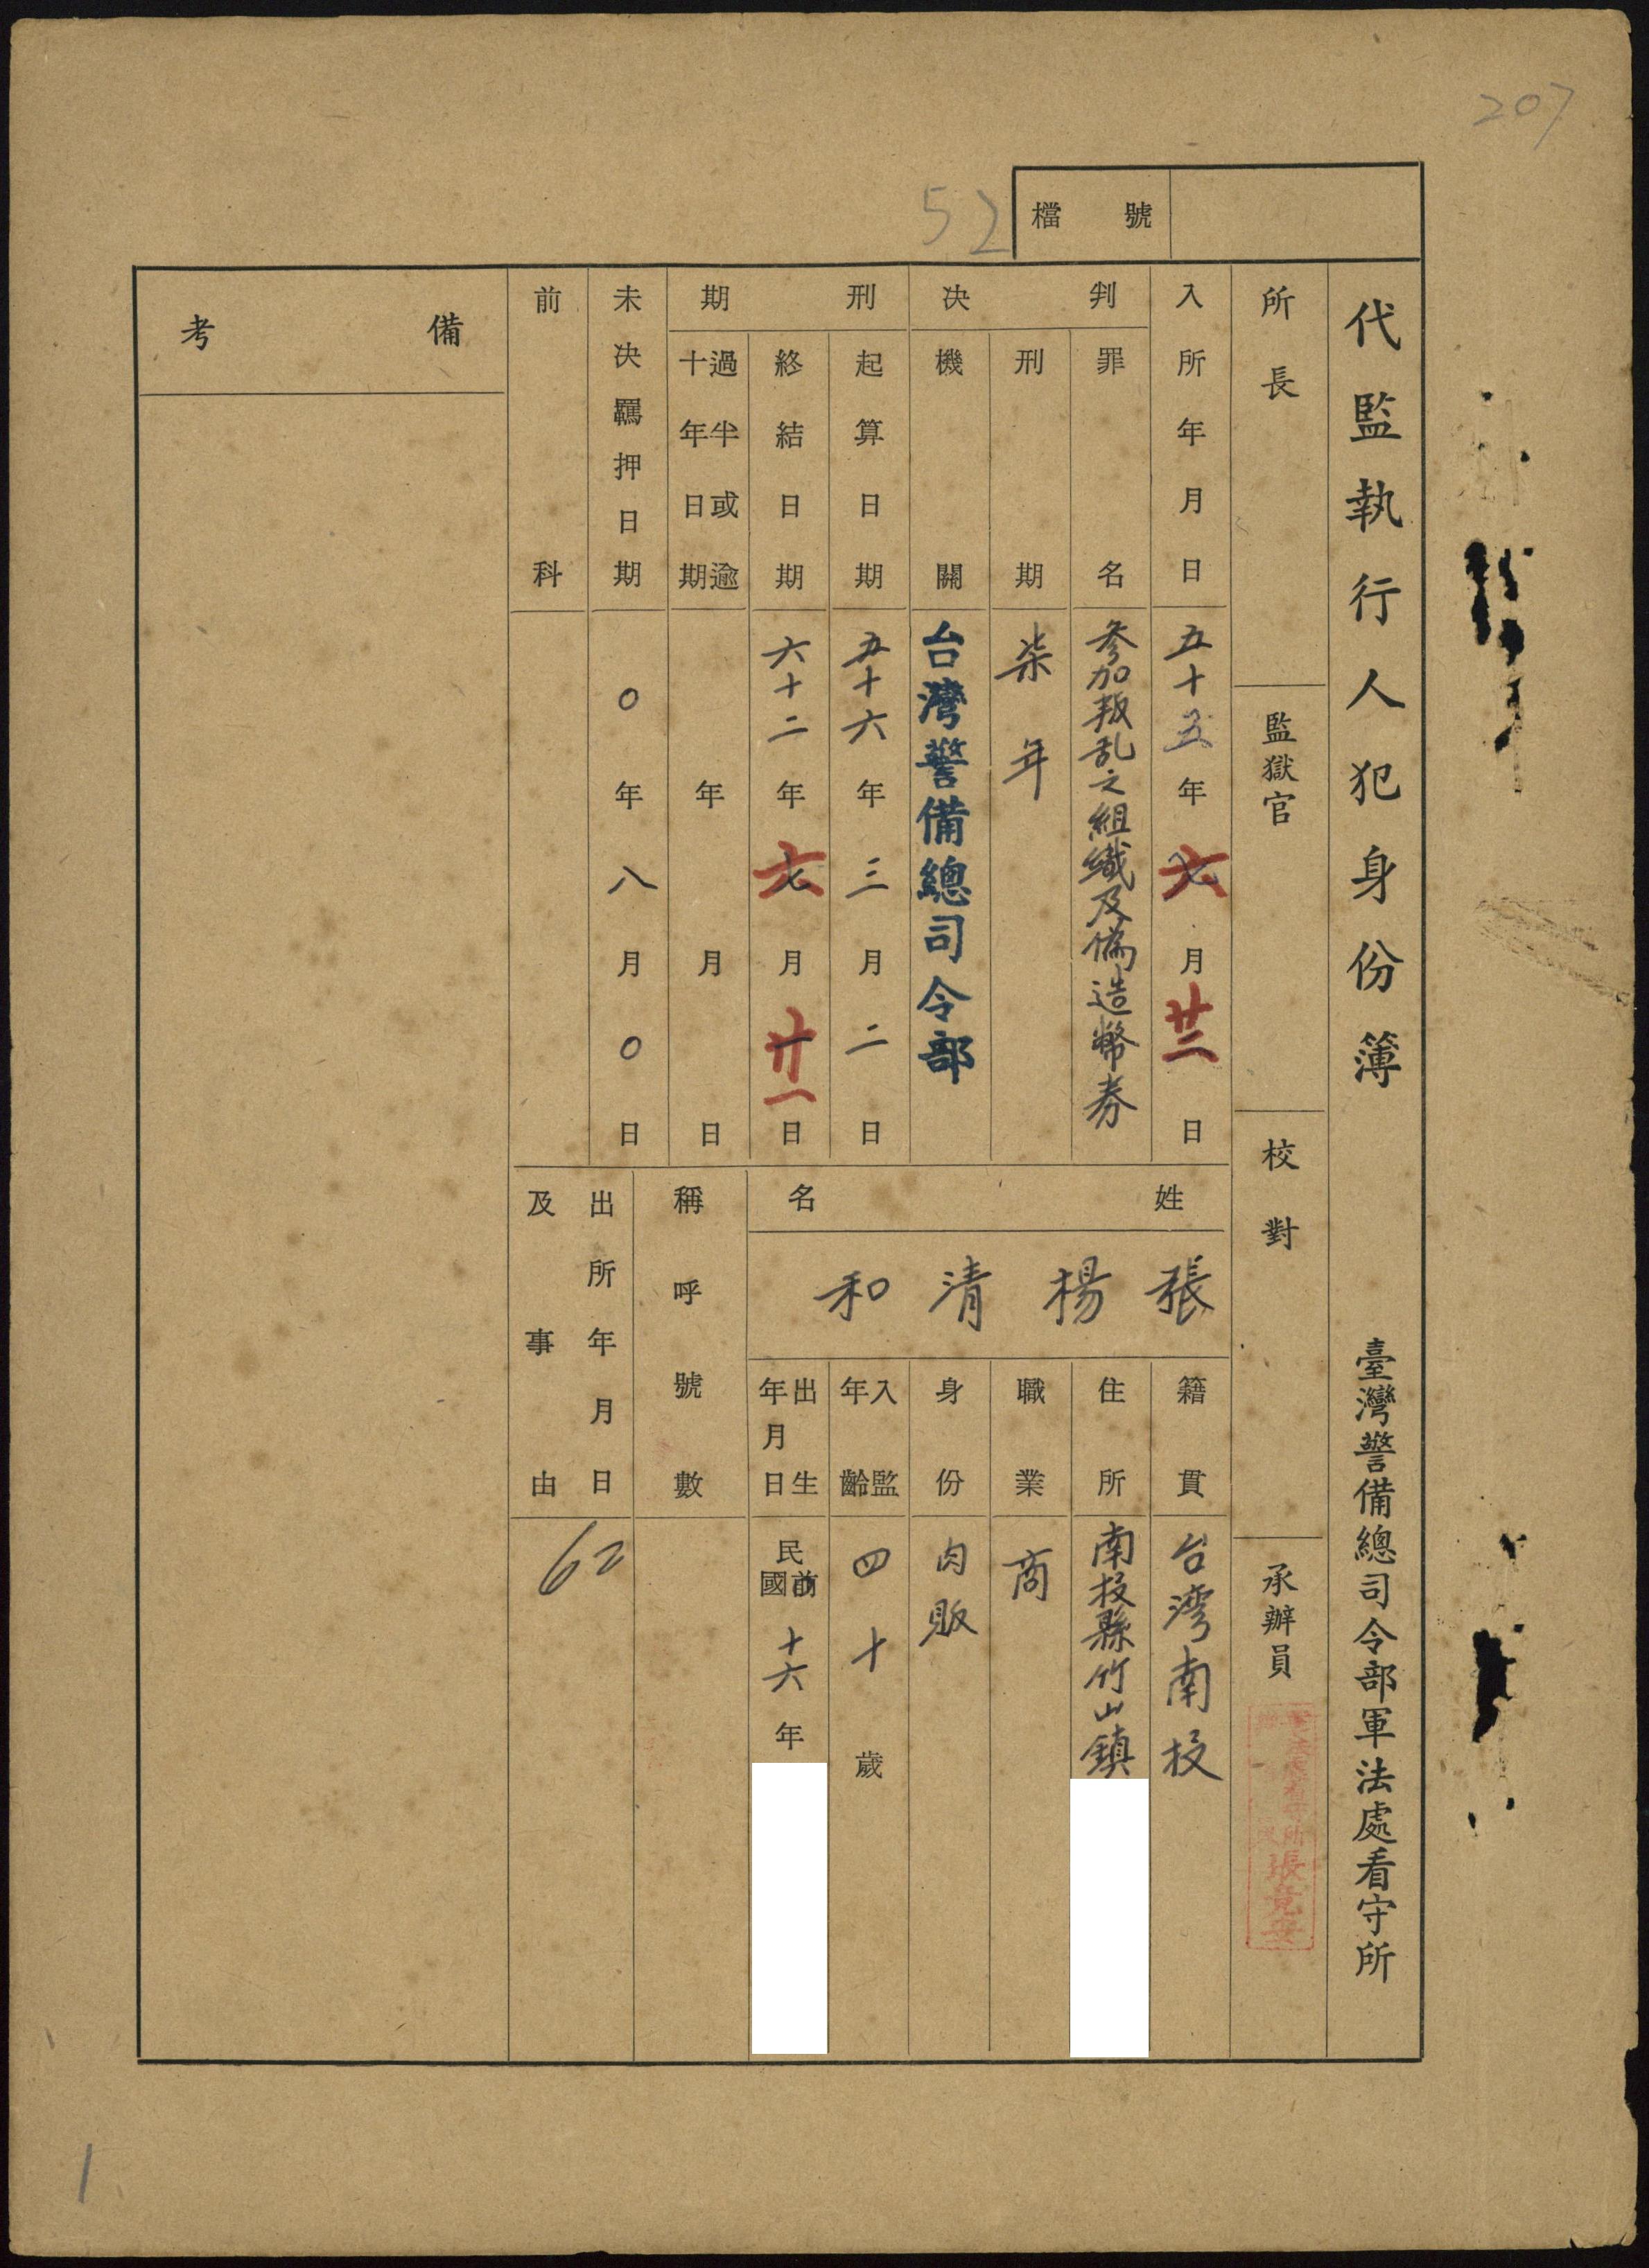 207
52
檔號
代監執行人犯身份簿 臺灣警備總司令部軍法處看守所
所長
監獄官
校對
承辦員
張
入所年月日 五十五年六月廿三日
判決
罪名 參加叛乱之組織及偽造幣券
刑期 柒年
機關 台灣警備總司令部
刑期
起算日期 五十六年三月二日
終結日期 六十二年六月廿一日
過半或逾十年日期 年 月 日
未決羈押日期 0年八月0日
前科
姓名
張楊清和
籍貫 台湾南投
住所 南投縣竹山鎮
職業 商
身份 肉販
入監年齡 四十歲
出生年月日 民國前十六年
稱呼號數
出所年月日及事由 62
備考
1